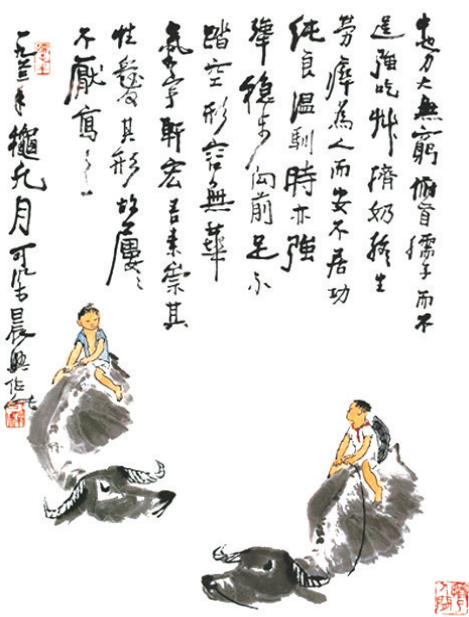 牛也力大無窮俯首孺子而不
逞強吃艸擠奶終生
劳瘁為人而安不居功
純良温馴時亦強
犟穩步向前足不
踏空形容無華
氣宇軒宏吾素崇其
性愛其形故屢々
不厭寫之
一九年龝九月可染晨興作